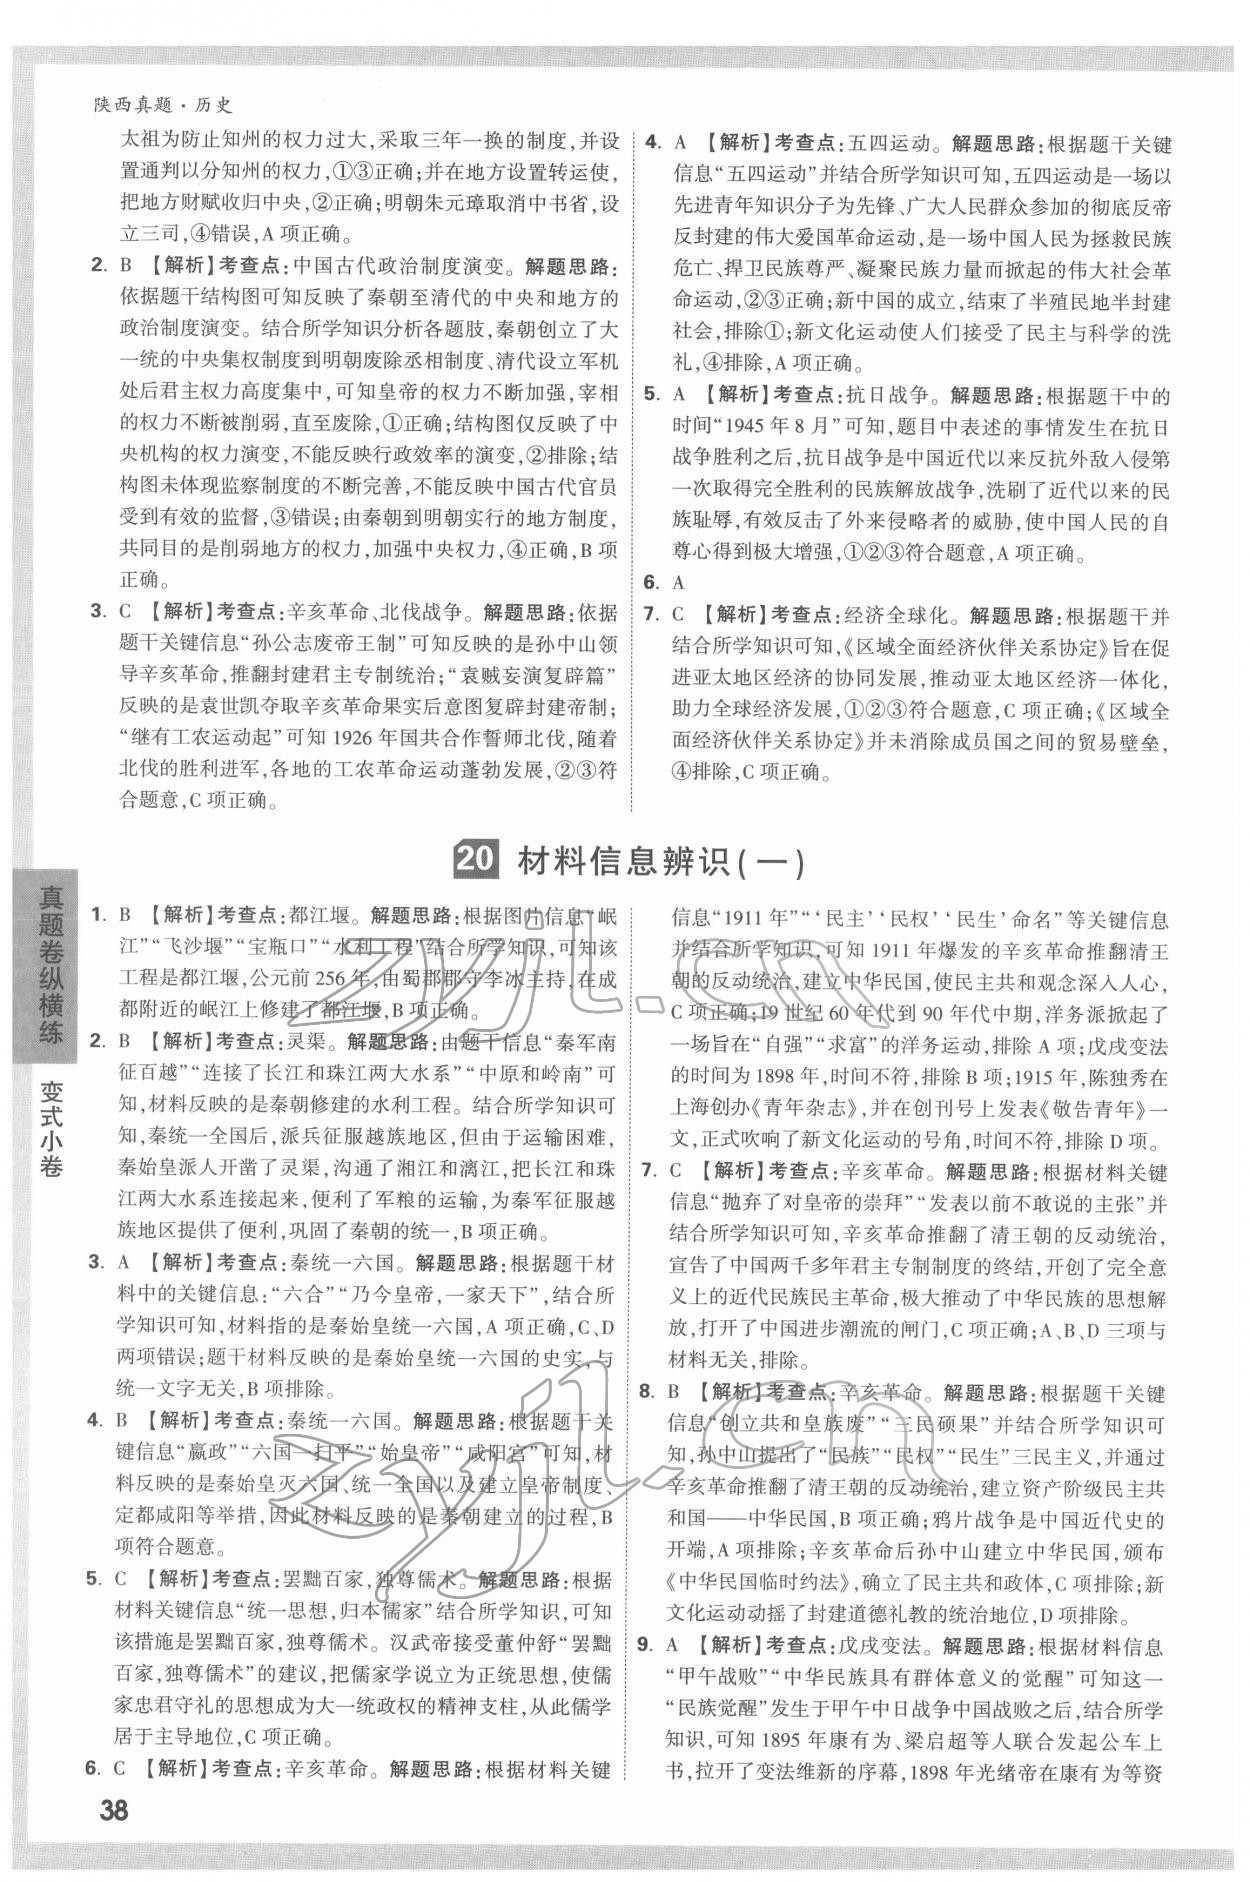 陕西真题·历史
太祖为防止知州的权力过大,采取三年一换的制度,并设
置通判以分知州的权力,①③正确;并在地方设置转运使,
把地方财赋收归中央,②正确;明朝朱元璋取消中书省,设
立三司,④错误,A项正确。
2. B 【解析】考查点:中国古代政治制度演变。解题思路:
依据题干结构图可知反映了秦朝至清代的中央和地方的
政治制度演变。结合所学知识分析各题肢,秦朝创立了大
一统的中央集权制度到明朝废除丞相制度、清代设立军机
处后君主权力高度集中,可知皇帝的权力不断加强,宰相
的权力不断被削弱,直至废除,①正确;结构图仅反映了中
央机构的权力演变,不能反映行政效率的演变,②排除;结
构图未体现监察制度的不断完善,不能反映中国古代官员
受到有效的监督,③错误;由秦朝到明朝实行的地方制度,
共同目的是削弱地方的权力,加强中央权力,④正确,B项
正确。
3. C 【解析】考查点:辛亥革命、北伐战争。解题思路:依据
题干关键信息“孙公志废帝王制”可知反映的是孙中山领
导辛亥革命,推翻封建君主专制统治;“袁贼妄演复辟篇”
反映的是袁世凯夺取辛亥革命果实后意图复辟封建帝制;
“继有工农运动起”可知1926年国共合作誓师北伐,随着
北伐的胜利进军,各地的工农革命运动蓬勃发展,②③符
合题意,C项正确。
4. A 【解析】考查点:五四运动。解题思路:根据题干关键
信息“五四运动”并结合所学知识可知,五四运动是一场以
先进青年知识分子为先锋、广大人民群众参加的彻底反帝
反封建的伟大爱国革命运动,是一场中国人民为拯救民族
危亡、捍卫民族尊严、凝聚民族力量而掀起的伟大社会革
命运动,②③正确;新中国的成立,结束了半殖民地半封建
社会,排除①;新文化运动使人们接受了民主与科学的洗
礼,④排除,A项正确。
5. A 【解析】考查点:抗日战争。解题思路:根据题干中的
时间“1945年8月”可知,题目中表述的事情发生在抗日
战争胜利之后,抗日战争是中国近代以来反抗外敌入侵第
一次取得完全胜利的民族解放战争,洗刷了近代以来的民
族耻辱,有效反击了外来侵略者的威胁,使中国人民的自
尊心得到极大增强,①②③符合题意,A项正确。
6. A
7. C 【解析】考查点:经济全球化。解题思路:根据题干并
结合所学知识可知,《区域全面经济伙伴关系协定》旨在促
进亚太地区经济的协同发展,推动亚太地区经济一体化,
助力全球经济发展,①②③符合题意,C项正确;《区域全
面经济伙伴关系协定》并未消除成员国之间的贸易壁垒,
④排除,C项正确。
20 材料信息辨识(一)
真题卷纵横练
变式小卷
1. B 【解析】考查点:都江堰。解题思路:根据图片信息“岷
江”“飞沙堰”“宝瓶口”“水利工程”结合所学知识,可知该
工程是都江堰,公元前256年,由蜀郡郡守李冰主持,在成
都附近的岷江上修建了都江堰,B项正确。
2. B 【解析】考查点:灵渠。解题思路:由题干信息“秦军南
征百越”“连接了长江和珠江两大水系”“中原和岭南”可
知,材料反映的是秦朝修建的水利工程。结合所学知识可
知,秦统一全国后,派兵征服越族地区,但由于运输困难,
秦始皇派人开凿了灵渠,沟通了湘江和漓江,把长江和珠
江两大水系连接起来,便利了军粮的运输,为秦军征服越
族地区提供了便利,巩固了秦朝的统一,B项正确。
3. A 【解析】考查点:秦统一六国。解题思路:根据题干材
料中的关键信息:“六合”“乃今皇帝,一家天下”,结合所
学知识可知,材料指的是秦始皇统一六国,A项正确,C、D
两项错误;题干材料反映的是秦始皇统一六国的史实,与
统一文字无关,B项排除。
4. B 【解析】考查点:秦统一六国。解题思路:根据题干关
键信息“嬴政”“六国一扫平”“始皇帝”“咸阳宫”可知,材
料反映的是秦始皇灭六国、统一全国以及建立皇帝制度、
定都咸阳等举措,因此材料反映的是秦朝建立的过程,B
项符合题意。
5. C 【解析】考查点:罢黜百家,独尊儒术。解题思路:根据
材料关键信息“统一思想,归本儒家”结合所学知识,可知
该措施是罢黜百家,独尊儒术。汉武帝接受董仲舒“罢黜
百家,独尊儒术”的建议,把儒家学说立为正统思想,使儒
家忠君守礼的思想成为大一统政权的精神支柱,从此儒学
居于主导地位,C项正确。
6. C 【解析】考查点:辛亥革命。解题思路:根据材料关键
信息“1911年”“‘民主’‘民权’‘民生’命名”等关键信息
并结合所学知识,可知1911年爆发的辛亥革命推翻清王
朝的反动统治,建立中华民国,使民主共和观念深入人心,
C项正确;19世纪60年代到90年代中期,洋务派掀起了
一场旨在“自强”“求富”的洋务运动,排除A项;戊戌变法
的时间为1898年,时间不符,排除B项;1915年,陈独秀在
上海创办《青年杂志》,并在创刊号上发表《敬告青年》一
文,正式吹响了新文化运动的号角,时间不符,排除D项。
7. C 【解析】考查点:辛亥革命。解题思路:根据材料关键
信息“抛弃了对皇帝的崇拜”“发表以前不敢说的主张”并
结合所学知识可知,辛亥革命推翻了清王朝的反动统治,
宣告了中国两千多年君主专制制度的终结,开创了完全意
义上的近代民族民主革命,极大推动了中华民族的思想解
放,打开了中国进步潮流的闸门,C项正确;A、B、D三项与
材料无关,排除。
8. B 【解析】考查点:辛亥革命。解题思路:根据题干关键
信息“创立共和皇族废”“三民硕果”并结合所学知识可
知,孙中山提出了“民族”“民权”“民生”三民主义,并通过
辛亥革命推翻了清王朝的反动统治,建立资产阶级民主共
和国——中华民国,B项正确;鸦片战争是中国近代史的
开端,A项排除;辛亥革命后孙中山建立中华民国,颁布
《中华民国临时约法》,确立了民主共和政体,C项排除;新
文化运动动摇了封建道德礼教的统治地位,D项排除。
9. A 【解析】考查点:戊戌变法。解题思路:根据材料信息
“甲午战败”“中华民族具有群体意义的觉醒”可知这一
“民族觉醒”发生于甲午中日战争中国战败之后,结合所学
知识,可知1895年康有为、梁启超等人联合发起公车上
书,拉开了变法维新的序幕,1898年光绪帝在康有为等资
38
zyjl.cn
zyjl.cn